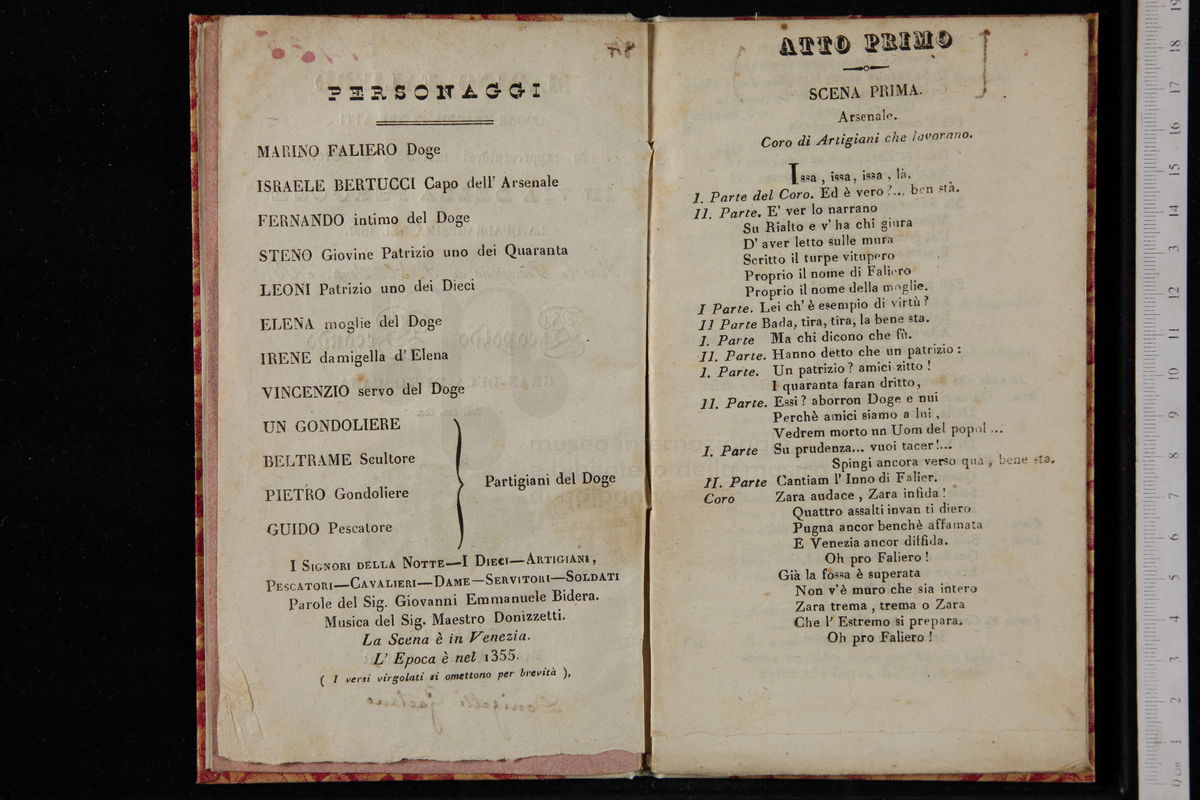 PERSONAGGI
MARINO FALIERO Doge
ISRAELE BERTUCCI Capo dell' Arsenale
FERNANDO intimo del Doge
STENO Giovine Patrizio uno dei Quaranta
LEONI Patrizio uno dei Dieci
ELENA moglie del Doge
IRENE damigella d' Elena
VINCENZIO servo del Doge
UN GONDOLIERE
BELTRAME Scultore
PIETRO Gondoliere
GUIDO Pescatore
Partigiani del Doge
I SIGNORI DELLA NOTTE—I DIECI—ARTIGIANI,
PESCATORI—CAVALIERI—DAME—SERVITORI—SOLDATI
Parole del Sig. Giovanni Emmanuele Bidera.
Musica del Sig. Maestro Donizzetti.
La Scena è in Venezia.
L' Epoca è nel 1355.
( I versi virgolati si omettono per brevità ),
ATTO PRIMO
SCENA PRIMA.
Arsenale.
Coro di Artigiani che lavorano.
Issa , issa, issa , là.
I. Parte del Coro. Ed è vero ?... ben stà.
II. Parte. E' ver lo narrano
Su Rialto e v' ha chi giura
D' aver letto sulle mura
Scritto il turpe vitupero
Proprio il nome di Faliero
Proprio il nome della moglie.
I Parte. Lei ch' è esempio di virtù ?
II Parte Bada, tira, tira, la bene sta.
I. Parte Ma chi dicono che fù.
II. Parte. Hanno detto che un patrizio :
I. Parte. Un patrizio ? amici zitto !
I quaranta faran dritto,
II. Parte. Essi ? aborron Doge e nui
Perchè amici siamo a lui ,
Vedrem morto un Uom del popol ...
I. Parte Su prudenza... vuoi tacer !...
Spingi ancora verso qua , bene sta.
II. Parte Cantiam l' Inno di Falier.
Coro Zara audace , Zara infida !
Quattro assalti invan ti diero
Pugna ancor benchè affamata
E Venezia ancor diffida.
Oh pro Faliero !
Già la fossa è superata
Non v'è muro che sia intero
Zara trema , trema o Zara
Che l' Estremo si prepara.
Oh pro Faliero !